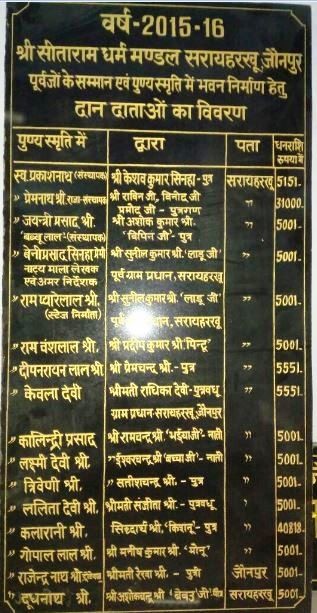 वर्ष-2015-16
श्री सीताराम धर्म मण्डल सरायहरखू, जौनपुर
पूर्वजों के सम्मान एवं पुण्य स्मृति में भवन निर्माण हेतु
दान दाताओं का विवरण
पुण्य स्मृति में द्वारा पता धनराशि
रुपया में
स्व. प्रकाशनाथ (संस्थापक) श्री केशव कुमार सिनहा - पुत्र सरायहरखू 5151.
" प्रेमनाथ श्री. राजा-संस्थापक) श्री राबिन जी, विनोद जी " 31000.
प्रमोद जी - पुत्रगण
" जयन्त्री प्रसाद श्री. श्री अशोक कुमार श्री. " 5001-
बब्बू लाल-(संस्थापक) 'बिपिन जी'- पुत्र
" बेनीप्रसाद सिनहा प्रेमी श्री सुनील कुमार श्री. 'लाडू जी' " 5001-
नाट्य माला लेखक पूर्व ग्राम प्रधान, सरायहरखू
एवं अमर निर्देशक
" राम प्यारेलाल श्री. श्री सुनील कुमार श्री. 'लाडू जी' " 5001-
(स्टेज निर्माता) पूर्व प्रधान, सरायहरखू
" राम वंशलाल श्री. श्री प्रदीप कुमार श्री. 'पिन्टू' " 5001-
" दीपनरायन लाल श्री. श्री प्रेमचन्द्र श्री. - पुत्र " 5551-
" केवला देवी श्रीमती राधिका देवी - पुत्रवधू " 5551-
ग्राम प्रधान-सरायहरखू जौनपुर
" कालिन्द्री प्रसाद श्री रामचन्द्र श्री. 'भईया जी' - नाती " 5001-
" लक्ष्मी देवी श्री. " ईश्वरचन्द्र श्री. 'बच्चा जी' - नाती " 5001-
" त्रिवेणी श्री. " सतीशचन्द्र श्री. - पुत्र " 5001-
" ललिता देवी श्री. श्रीमती संजीता श्री. - पुत्रवधू " 5001-
" कलारानी श्री. सिद्धार्थ श्री. - पुत्र " 40818-
" गोपाल लाल श्री. श्री मनीष कुमार श्री. 'मोनू' " 5001-
" राजेन्द्र नाथ श्री. श्रीमती रेखा श्री. - पुत्री जौनपुर 5001-
" दूधनाथ श्री. श्री अशोकचन्द्र श्री. जी - पुत्र सरायहरखू 5001-